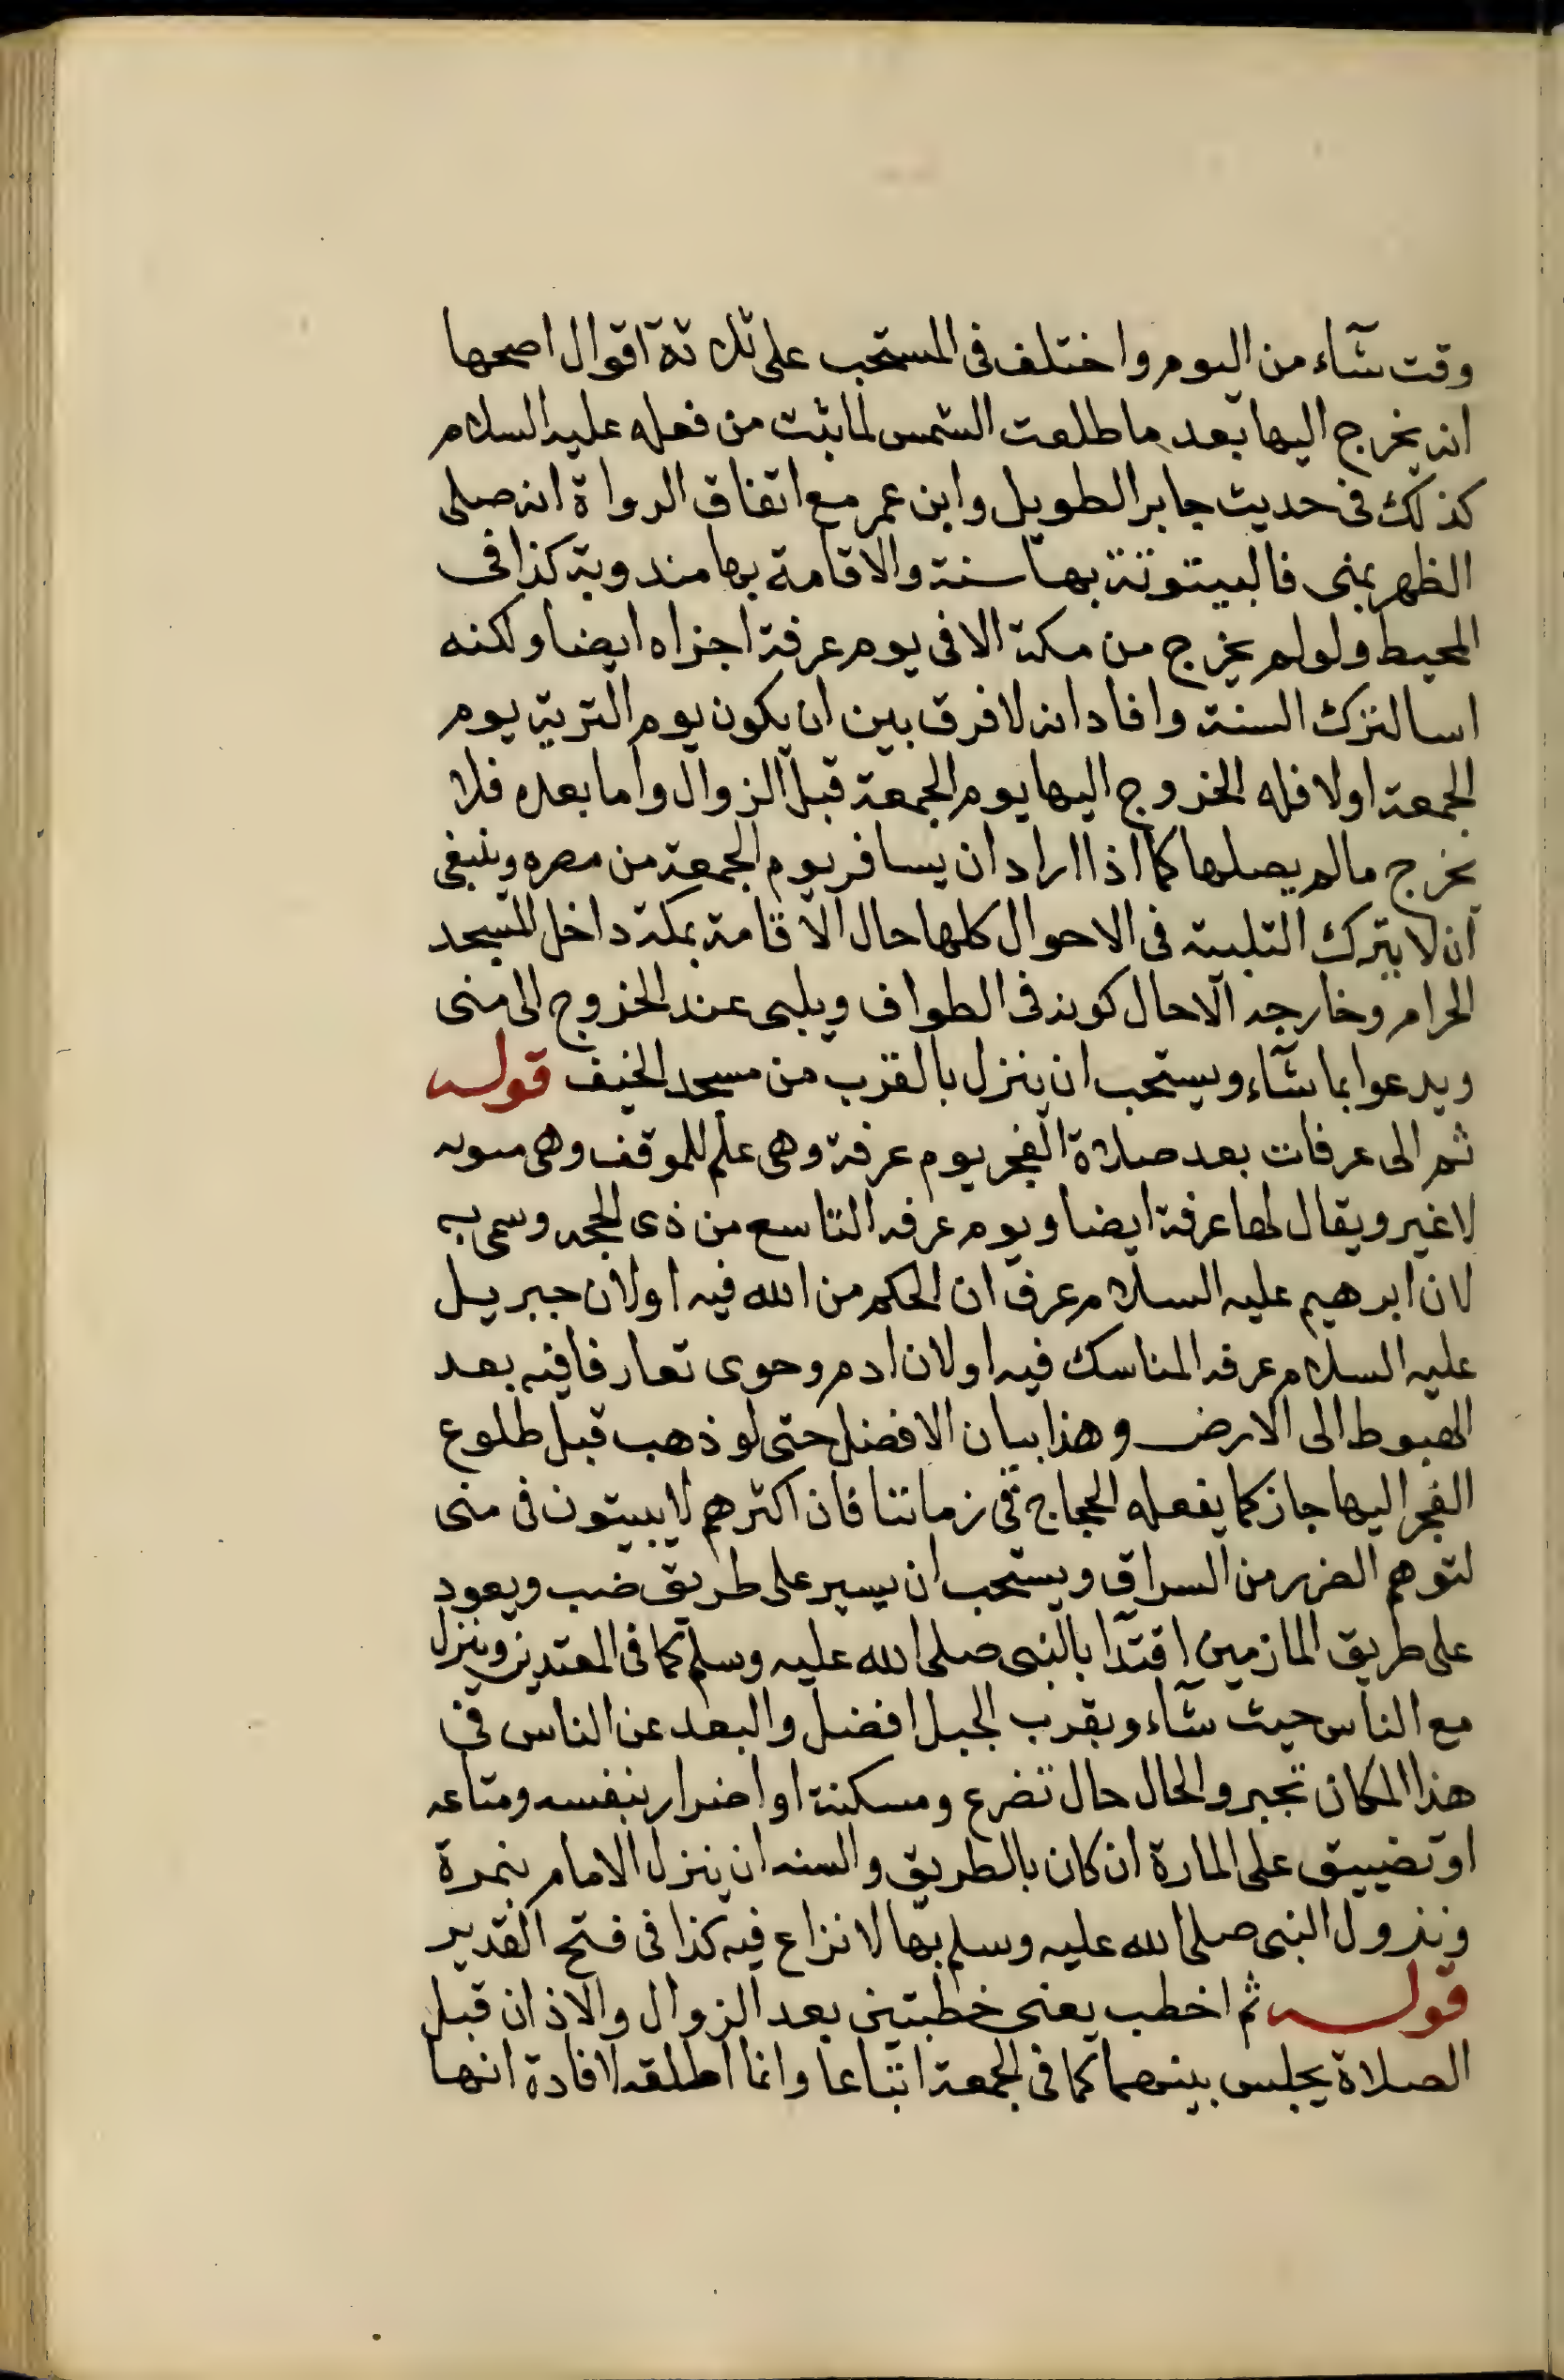 وقت شآء من اليوم واختلف فى المستحب على ثلاثة اقوال اصحها
انه يخرج اليها بعد ما طلعت الشمس لما ثبت من فعله عليه السلام
كذلك فى حديث جابر الطويل وابن عمر مع اتفاق الرواة انه صلى
الظهر بمنى فالبيتوتة بها سنة والاقامة بها مندوبة كذا فى
المحيط ولو لم يخرج من مكة الا فى يوم عرفة اجزاه ايضا ولكنه
اسا لترك السنة وافاد انه لا فرق بين ان يكون يوم التربية يوم
الجمعة او لا فله الخروج اليها يوم الجمعة قبل الزوال واما بعده فلا
يخرج ما لم يصلها كما اذا اراد ان يسافر يوم الجمعة من مصره وينبغى
ان لا يترك التلبية فى الاحوال كلها حال الاقامة بمكة داخل المسجد
الحرام وخارجه الا حال كونه فى الطواف ويلبى عند الخروج الى منى
ويدعوا بما شآء ويستحب ان ينزل بالقرب من مسجد الخيف قوله
ثم الى عرفات بعد صلاة الفجر يوم عرفة وهى علم للموقف وهى منونه
لا غير ويقال لها عرفة ايضا ويوم عرفه التاسع من ذى الحجه وسمى به
لان ابرهيم عليه السلام عرف ان الحكم من الله فيه او لان جبريل
عليه السلام عرفه المناسك فيه او لان ادم وحوى تعارفا فيه بعد
الهبوط الى الارض وهذا بيان الافضل حتى لو ذهب قبل طلوع
الفجر اليها جاز كما يفعله الحجاج فى زماننا فان اكثرهم لا يبيتون فى منى
لتوهم الضرر من السراق ويستحب ان يسير على طريق ضب ويعود
على طريق المازمين اقتدآ بالنبى صلى الله عليه وسلم كما فى وينزل
مع الناس حيث شآء وبقرب الجبل افضل والبعد عن الناس فى
هذا المكان تجبر والحال حال تضرع ومسكنة او اضرار بنفسه ومتاعه
او تضييق على المارة ان كان بالطريق والسنه ان ينزل الامام بنمرة
ونزول النبى صلى الله عليه وسلم بها لا نزاع فيه كذا فى فتح القدير
قوله ثم اخطب يعنى خطبتين بعد الزوال والاذان قبل
الصلاة يجلس بينهما كما فى الجمعة اتباعا وانما اطلقه لافادة انها